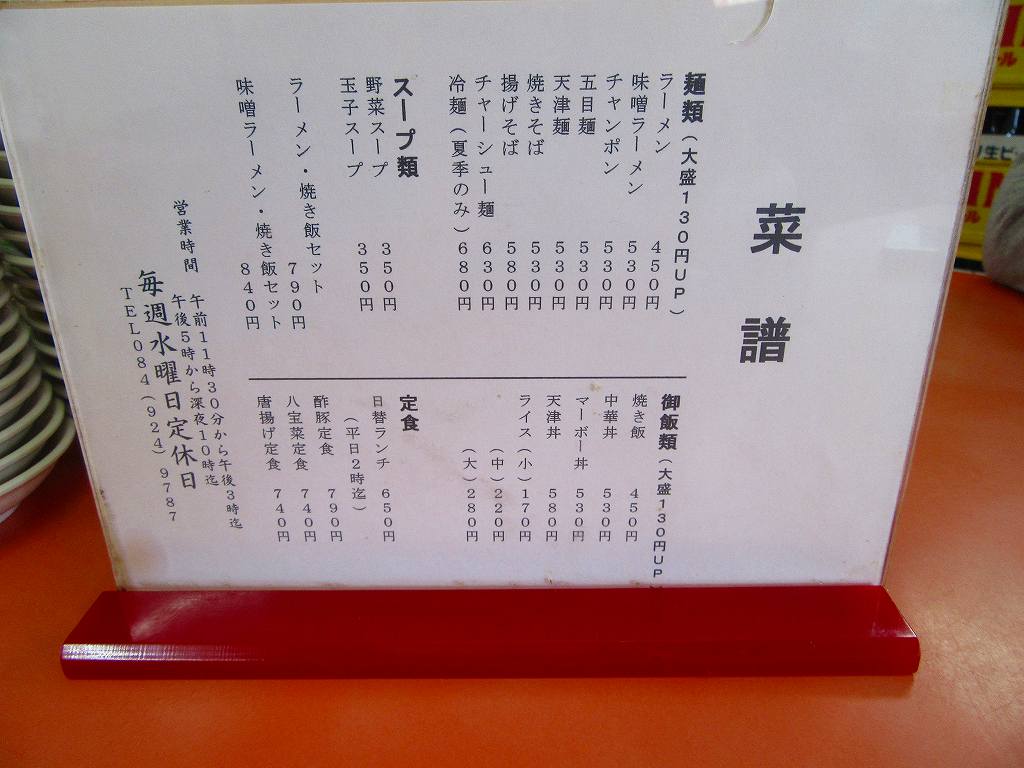 菜譜
麺類(大盛130円UP)
ラーメン 450円
味噌ラーメン 530円
チャンポン 530円
五目麺 530円
天津麺 530円
焼きそば 530円
揚げそば 580円
チャーシュー麺 630円
冷麺(夏季のみ) 680円
スープ類
野菜スープ 350円
玉子スープ 350円
ラーメン・焼き飯セット 790円
味噌ラーメン・焼き飯セット 840円
御飯類(大盛130円UP)
焼き飯 450円
中華丼 530円
マーボー丼 530円
天津丼 580円
ライス(小)170円
(中)220円
(大)280円
定食
日替ランチ 650円
(平日2時迄)
酢豚定食 790円
八宝菜定食 740円
唐揚げ定食 740円
営業時間 午前11時30分から午後3時迄
午後5時から深夜10時迄
毎週水曜日定休日
TEL084(924)9787
生ビ